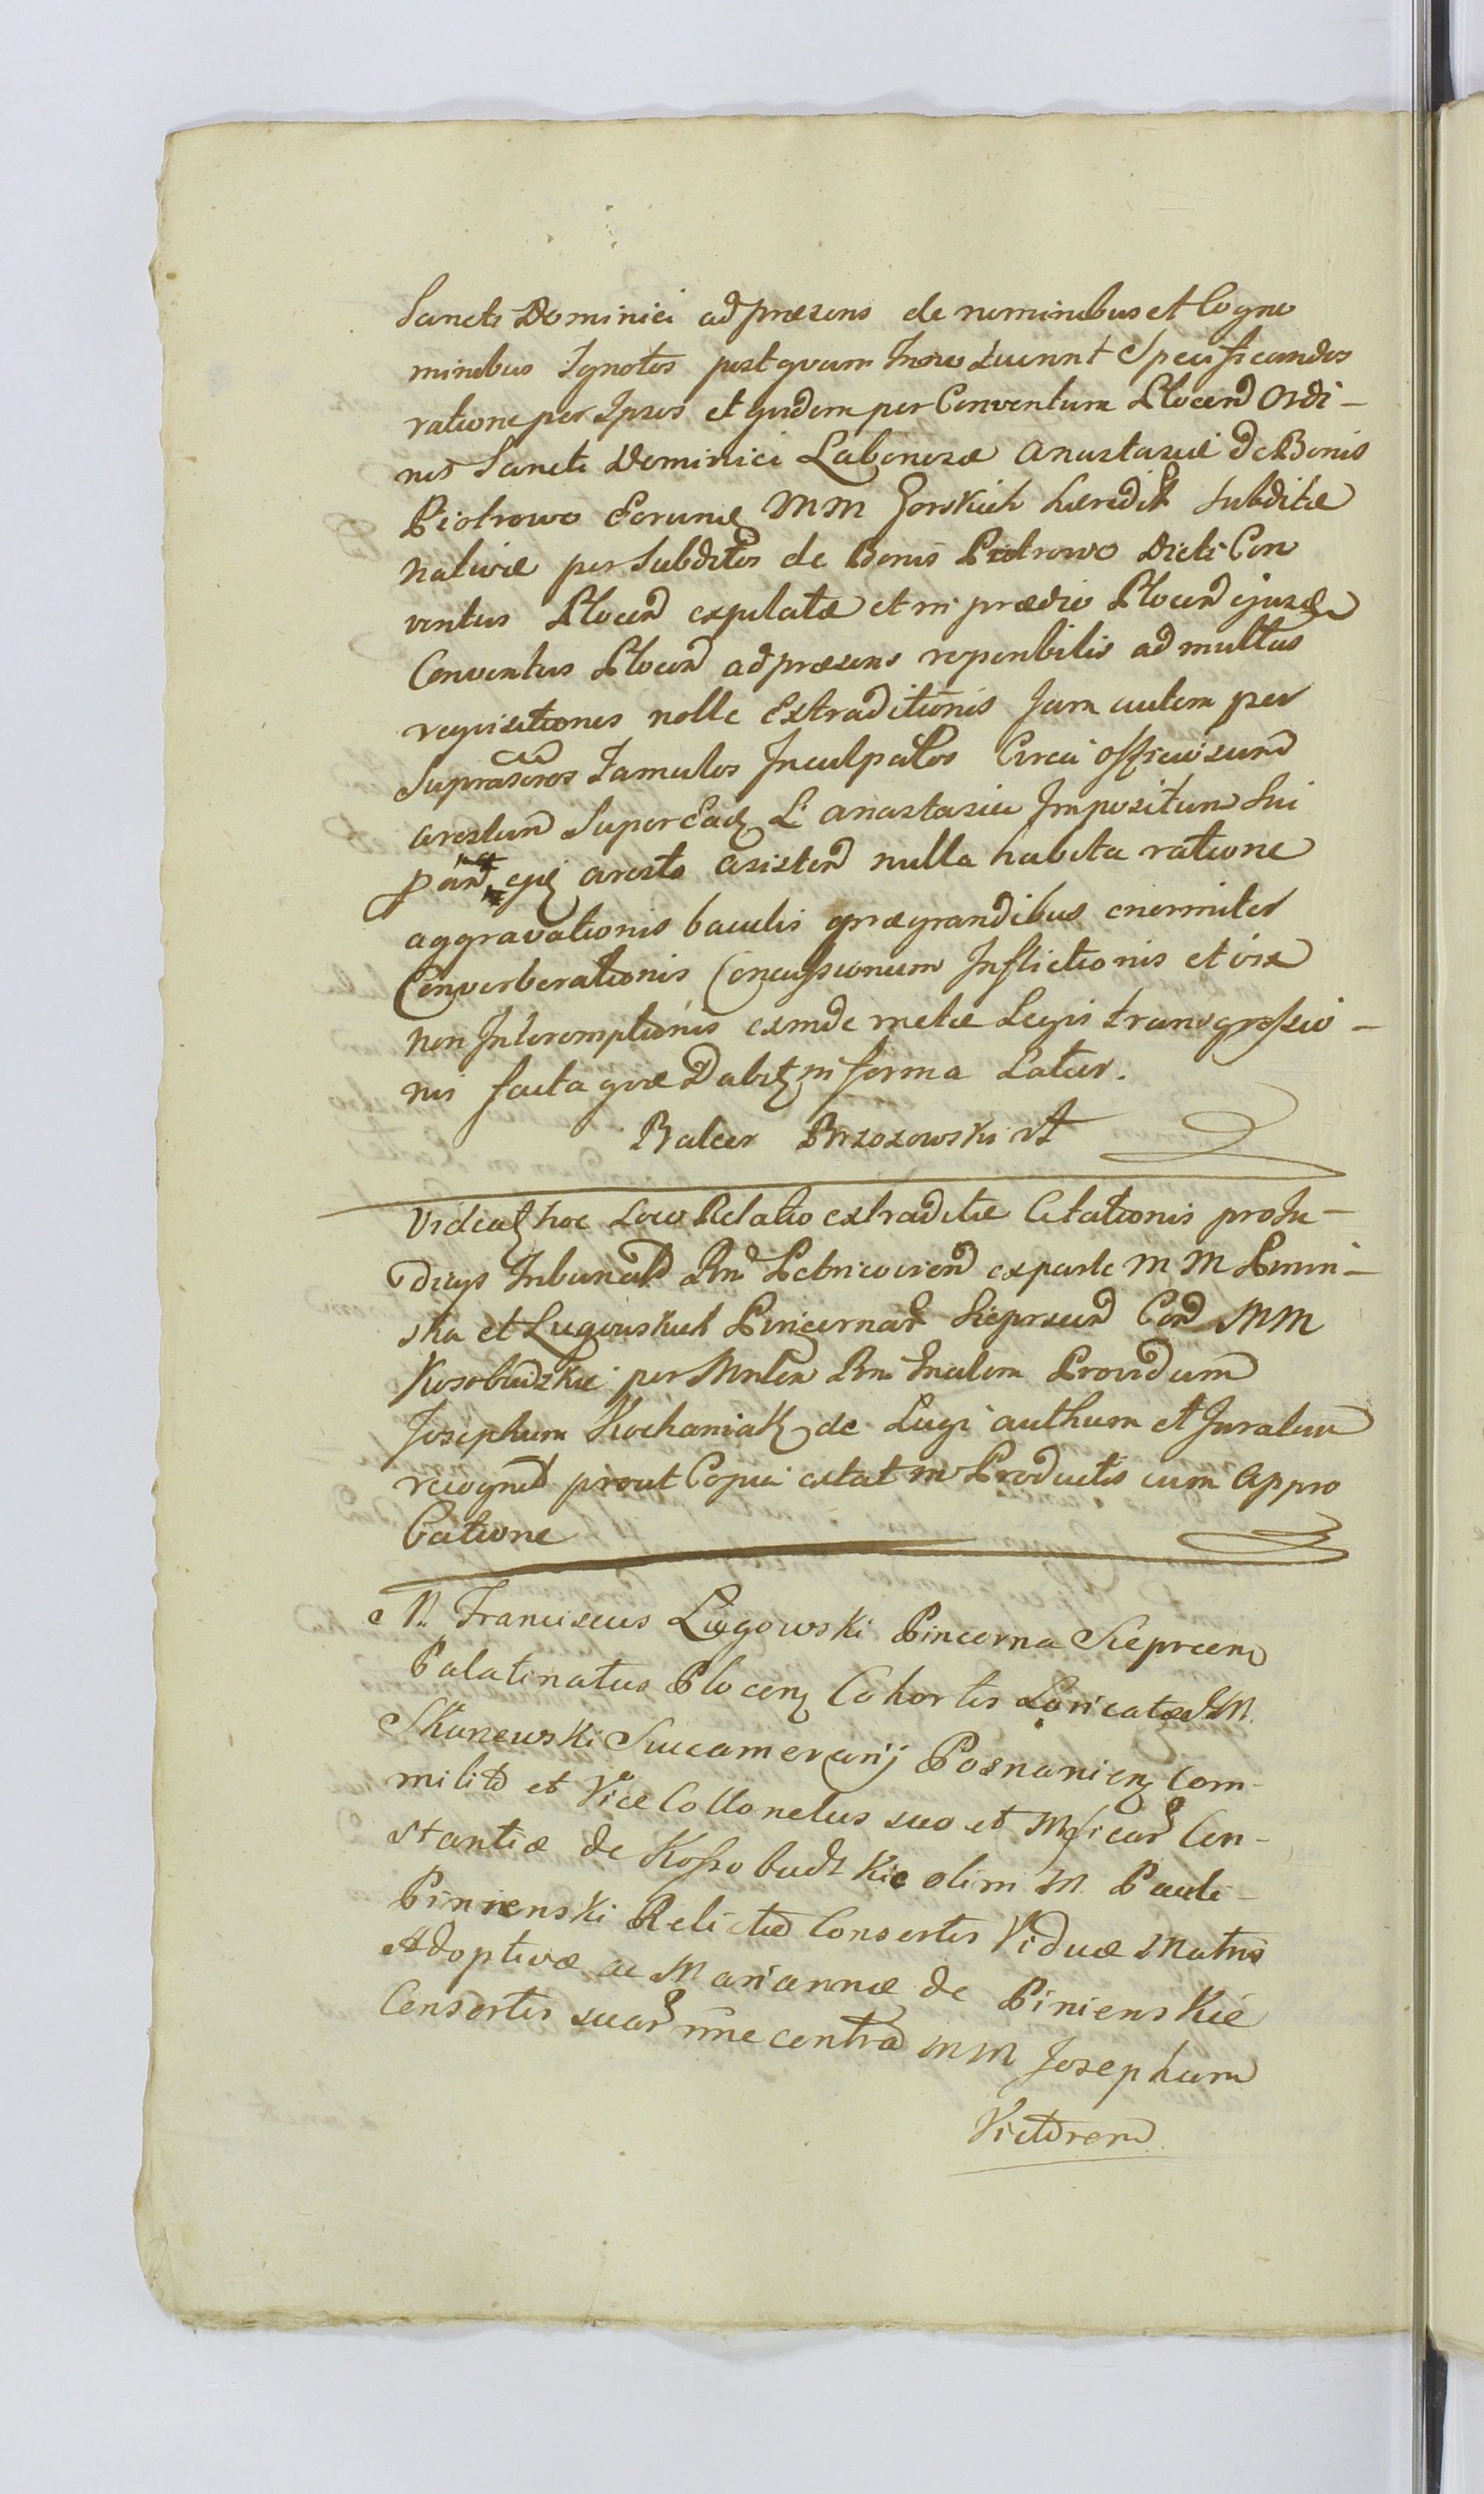 Sancti Dominici ad præsens de nominibus et Cogno
minibus Ignotos postquam Innotuerint Specificandos
ratione per Ipsos et quidem per Conventum Plocen Ordi-
nis Sancti Dominici Laboriosæ Anastasiæ de Bonis
Piotrowo Eorund MM Gorskich hæredit Subditæ
Nativæ per Subditos de Bonis Piotrowo Dicti Con
ventus Plocen expulatæ et in prædio Plocen ejusdem
Conventus Plocen ad præsens reperibilis ad multas
requisitiones nolle Extraditionis Jam autem per
Suprascros Famulos Inculpatos Circa officiosum
arestum Super Ead L Anastasia Impositum Sui
aresto asisten nulla habita ratione
aggravationis baculis prægrandibus enormiter
Converberationis Concussionum Inflictionis et vix
non Interemptionis exinde metæ Legis transgressio-
nis facta quæ Dabit in forma Latior.
Balcer Brzozowski
Videat hoc Loco Relatio extraditæ Citationis pro Ju-
dicijs Tribunal Rni Petricovien ex parte MM Pinin-
ska et Lugowskich Pincernar Sieprscen Con MM
Kosobudzkie per Mnlem Rni Gnalem Providum
Josephum Kochaniak de Lugi authum et Juratum
recognit prout Copia extat in Productis cum Appro
batione
M. Franciscus Lugowski Pincerna Sieprcen
Palatinatus Plocen Cohortis Loricatæ M.
Skurewski Succamerarij Posnanien Com-
milito et Vice Collonelus suo et Mficar Con-
stantiæ de Kossobudzkie olim M. Pauli
Pinienski Relictæ Consortis Viduæ Matris
Adoptivæ ac Mariannæ de Pinienskie
Consortis suar nne contra MM Josephum
Victorem